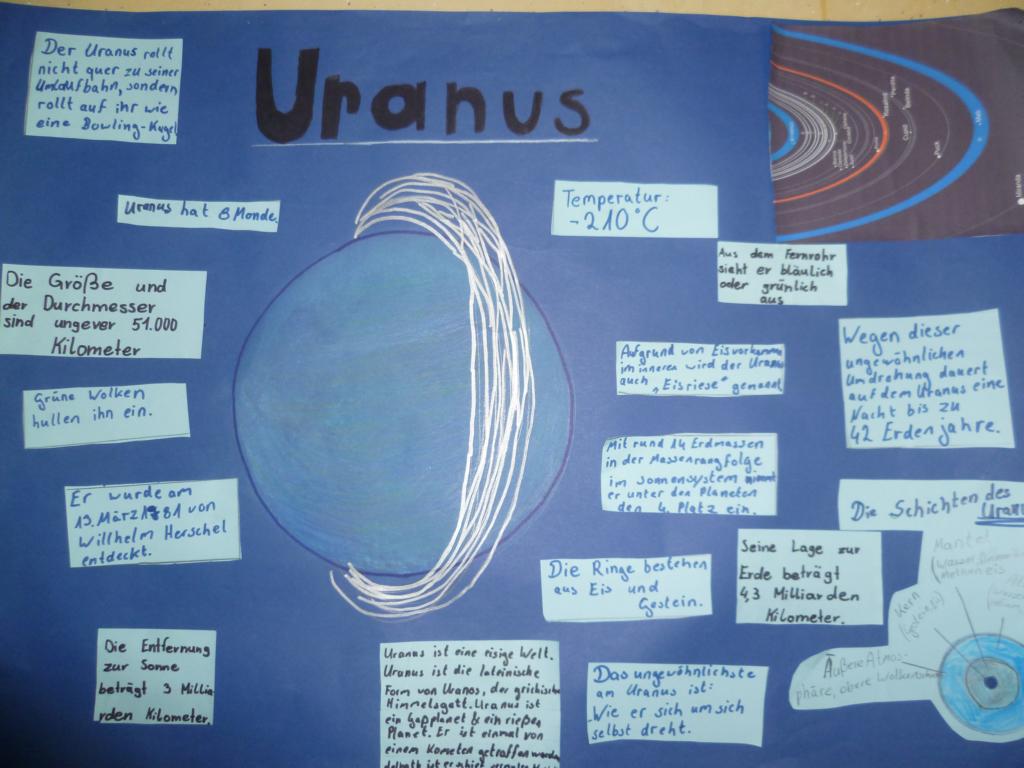 Uranus
Der Uranus rollt
nicht quer zu seiner
Umlaufbahn, sondern
rollt auf ihr wie
eine Bowling-Kugel
Uranus hat 8 Monde.
Die Größe und
der Durchmesser
sind ungever 51.000
Kilometer
Grüne Wolken
hüllen ihn ein.
Er wurde am
13. März 1781 von
Willhelm Herschel
entdeckt.
Die Entfernung
zur Sonne
beträgt 3 Millia-
rden Kilometer.
Temperatur:
-210°C
Aus dem Fernrohr
sieht er bläulich
oder grünlich
aus
Aufgrund von Eisvorkommen
im inneren wird der Uranus
auch „Eisriese" genannt
Wegen dieser
ungewöhnlichen
Umdrehung dauert
auf dem Uranus eine
Nacht bis zu
42 Erdenjahre.
Mit rund 14 Erdmassen
in der Massenrangfolge
im sonnensystem nimmt
er unter den Planeten
den 4. Platz ein.
Die Ringe bestehen
aus Eis und
Gestein.
Seine Lage zur
Erde beträgt
4,3 Milliarden
Kilometer.
Uranus ist eine eisige Welt.
Uranus ist die lateinische
Form von Uranos, der grichische
Himmelsgott. Uranus ist
ein Gasplanet & ein rießen
Planet. Er ist einmal von
einem Kometen getroffen worden
deshalb ist er schief
Das ungewöhnlichste
an Uranus ist:
Wie er sich um sich
selbst dreht.
Die Schichten des
Uranus
Mantel
(Wasser,
Methaneis
Kern
(gestein)
Äußere Atmos-
phäre, obere Wolkenschicht
Cupid
Puck
Mab
Miranda